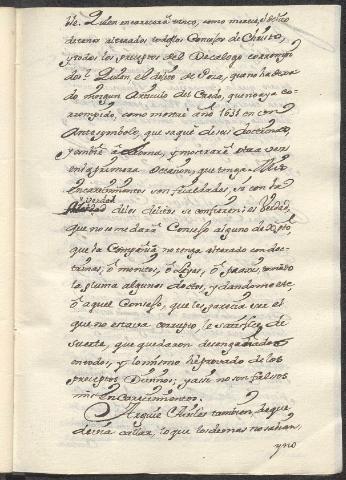 te. Quien encarecerá nunca, como merece, el delito
de tener alterados todos los Consejos de Christo,
y todos los preceptos del Decalogo corrompi-
dos? Quien, el delito de Poza, que no ha dexa-
do ningun Articulo del Credo, que no aya co-
rrompido, como mostré año 1631 en Con
Antesymbolo, que saqué de sus doctrinas,
y embié à Roma, y mostrará otra vez
en la primera ocasion, que tenga. Mis
encarecimientos son frialdades, si con la
y verdad
de los delitos se confieren: es verdad,
que no se me dará Consejo alguno de Xpto,
que la Compañia no tenga alterado con doc-
trinas, ò meritos, ò Leyes, ò
la pluma algunos doctos, y dandome este,
ò aquel Consejo, que les parecia ser el
que no estava corrupto, le satisfice de
suerte, que quedaron desengañados
en todos, y lo mismo he provado de los
preceptos Divinos; y assi no son falsos
mis encarecimientos.
Arguie Chirles tambien, de que
devia callar, lo que los demas no sabian,
y no